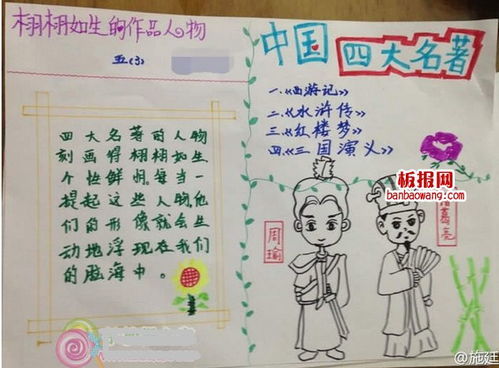 栩栩如生的作品人物
五(3)
四大名著的人物
刻画得栩栩如生
个性鲜明。每当一
提起这些人物他
们的形像就会生
动地浮现在我们
的脑海中。
中国四大名著
一.《西游记》
二.《水浒传》
三.《红楼梦》
四.《三国演义》
周瑜
诸葛亮
板报网
banbaowang.com
@施廷